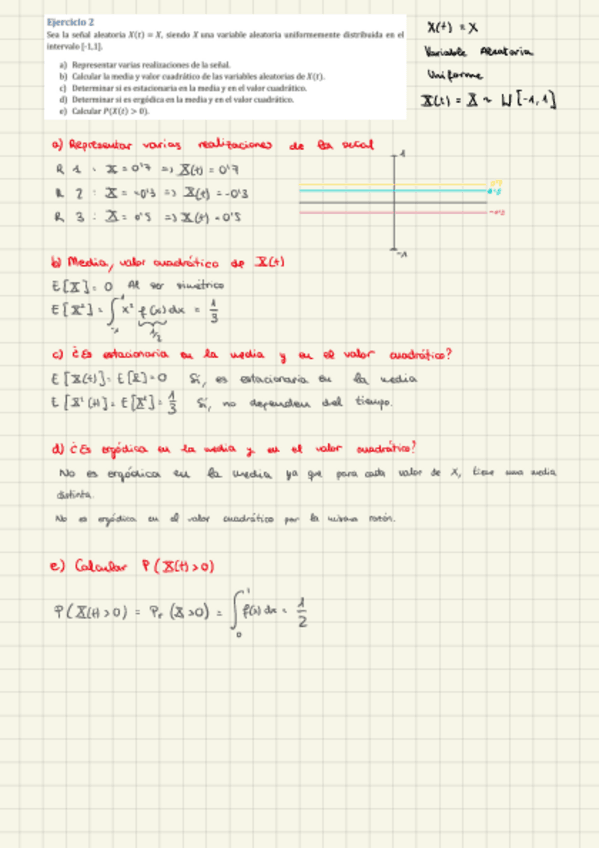 Ejercicio 2
Sea la señal aleatoria X(t) = X, siendo X una variable aleatoria uniformemente distribuida en el
intervalo [-1,1].
a) Representar varias realizaciones de la señal.
b) Calcular la media y valor cuadrático de las variables aleatorias de X(t).
c) Determinar si es estacionaria en la media y en el valor cuadrático.
d) Determinar si es ergódica en la media y en el valor cuadrático.
e) Calcular P(X(t) > 0).
X(t) = X
Variable Aleatoria
Uniforme
X(t) = X ~ U[-1,1]
a) Representar varias realizaciones de la señal
R 1 : X = 0'7 => X(t) = 0'7
R 2 : X = -0'3 => X(t) = -0'3
R 3 : X = 0'5 => X(t) = 0'5
1
-0'3
-1
b) Media, valor cuadrático de X(t)
E[X] = 0 Al ser simétrico
E[X²] = ∫₋₁¹ x² f(x) dx = 1/3
1/2
c) ¿Es estacionaria en la media y en el valor cuadrático?
E[X(t)] = E[X] = 0 Sí, es estacionaria en la media
E[X²(t)] = E[X²] = 1/3 Sí, no dependen del tiempo.
d) ¿Es ergódica en la media y en el valor cuadrático?
No es ergódica en la media ya que para cada valor de X, tiene una media
distinta.
No es ergódica en el valor cuadrático por la misma razón.
e) Calcular P(X(t) > 0)
P(X(t) > 0) = Pr(X > 0) = ∫₀¹ f(x) dx = 1/2